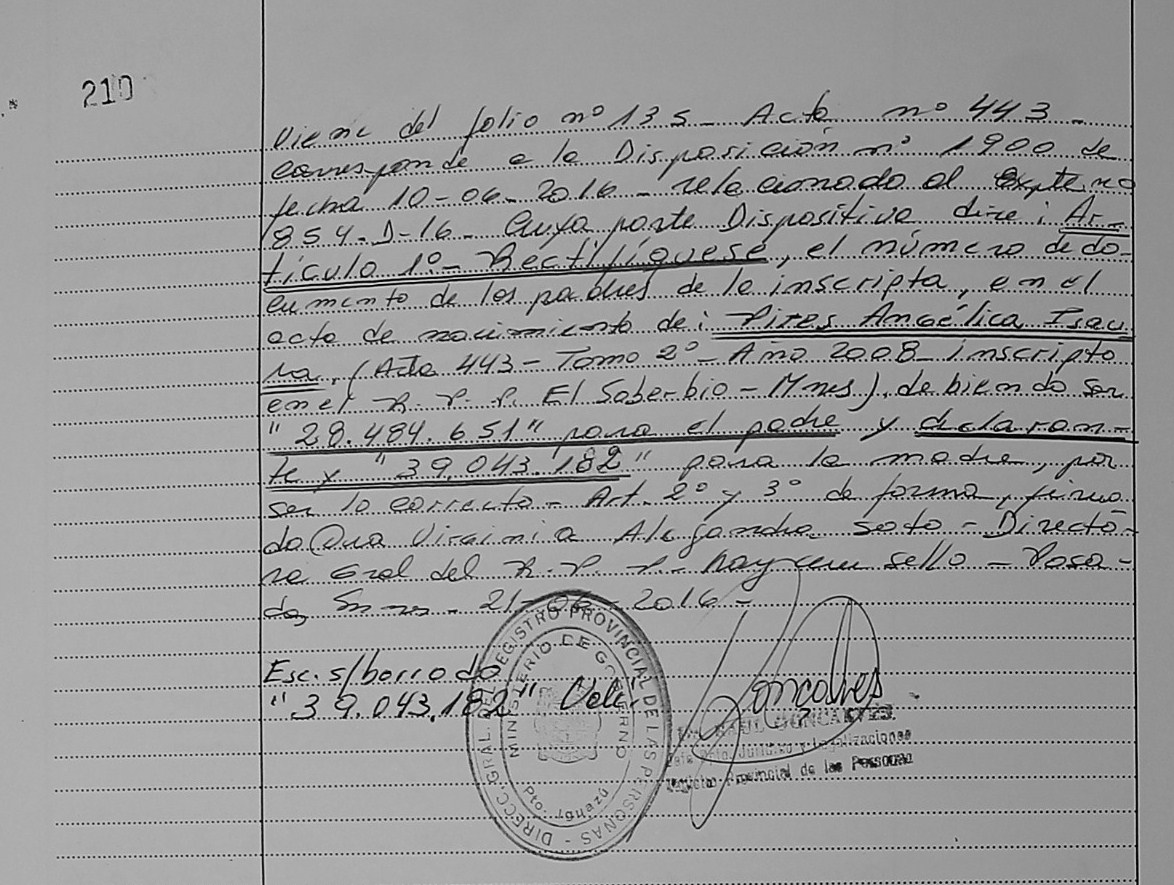 210
Viene del folio nº 135 - Acta nº 443 -
corresponde a la Disposición nº 1900 de
fecha 10-06-2016 - relacionado al Expte nº
854-D-16 - Cuya parte Dispositiva dice: Ar-
tículo 1º - Rectifíquese, el número de do-
cumento de los padres de la inscripta, en el
acta de nacimiento de: Pires Angélica Isau
ra, (Acta 443 - Tomo 2º - Año 2008 inscripto
en el R. P. P. El Soberbio - Mnes), debiendo ser
"28.484.651" para el padre y declaran-
te y "39.043.182" para la madre, por
ser lo correcto - Art. 2º y 3º de forma, firma
do Dra Virginia Alejandra Soto - Directo-
ra Gral del R. P. P. - hay un sello - Posa-
das, Mnes - 21-06-2016 -
Esc. s/borrado
"39.043.182" Vale.
Goncalves
RAUL GONCALVES
Jurídico y Legalizaciones
Registro Provincial de las Personas
DIRECC. GRAL. DEL REGISTRO PROVINCIAL DE LAS PERSONAS
MINISTERIO DE GOBIERNO
Pto. Iguazú